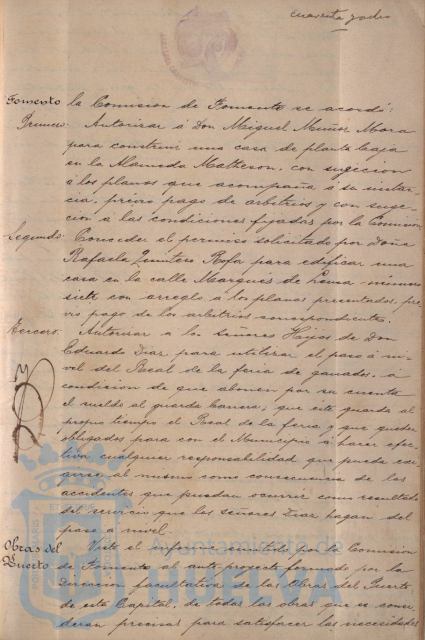 cuarenta y ocho
Fomento la Comision de Fomento se acordó:
Primero. Autorizar á Don Miguel Muñoz Mora
para construir una casa de planta baja
en la Alameda Matheson, con sugecion
á los planos que acompaña á su instan-
cia, previo pago de arbitrios y con suge-
cion á las condiciones fijadas por la Comision
Segundo. Conceder el permiso solicitado por Doña
Rafaela Quintero para edificar una
casa en la calle Marqués de número
siete con arreglo á los planos presentados, pre-
vio pago de los arbitrios correspondientes.
Tercero. Autorizar a los señores Hijos de Don
Eduardo Diaz para utilizar el paso á ni-
vel del Real de la feria de ganados, á
condicion de que abonen por su cuenta
el sueldo al guarda barrera, que este guarda al
propio tiempo el Real de la feria y que queden
obligados para con el Municipio á hacer efec-
tiva cualquier responsabilidad que pueda
al mismo como consecuencia de los
accidentes que puedan ocurrir como resultado
del servicio que los señores Diaz hagan del
paso a nivel.
Obras del Visto el informe emitido por la Comision
Puerto de Fomento al ante proyecto formado por la
Direccion facultativa de las Obras del Puerto
de esta Capital, de todas las obras que se consi-
deran precisas para satisfacer las necesidades
Ayuntamiento de
HUELVA